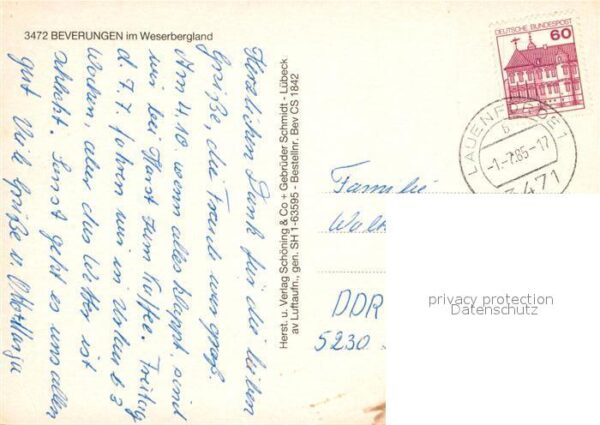 3472 BEVERUNGEN im Weserbergland
Herzlichen Dank für die lieben
Grüße, die Freude war groß.
Am 4.10 wenn alles klappt, sind
wir bei Horst zum Kaffee. Freitag
d. 7.7. fahren wir in Urlaub b 3
Wochen, aber das Wetter ist
schlecht. Sonst geht es uns allen
gut Viele Grüße v.
Herst. u. Verlag Schöning & Co + Gebrüder Schmidt - Lübeck
av Luftaufn., gen. SH 1-63595 - Bestellnr. Bev CS 1842
DEUTSCHE BUNDESPOST
60
LAUENFÖRDE 1
b
-1.-7.85-17
3471
Familie
Walt
DDR
5230
privacy protection
Datenschutz